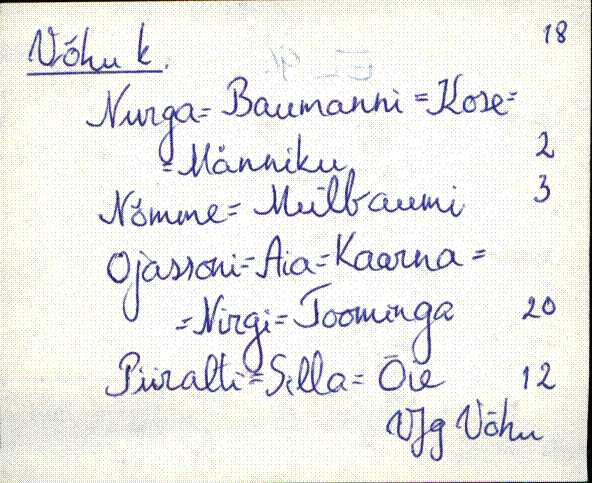 18
Võhu k.
Nurga = Baumanni = Kose =
= Männiku 2
Nõmme = Mülbaumi 3
Ojassoni = Aia = Kaarna =
= Nirgi = Toominga 20
Piiralti = Silla = Õie 12
Vjg Võhu